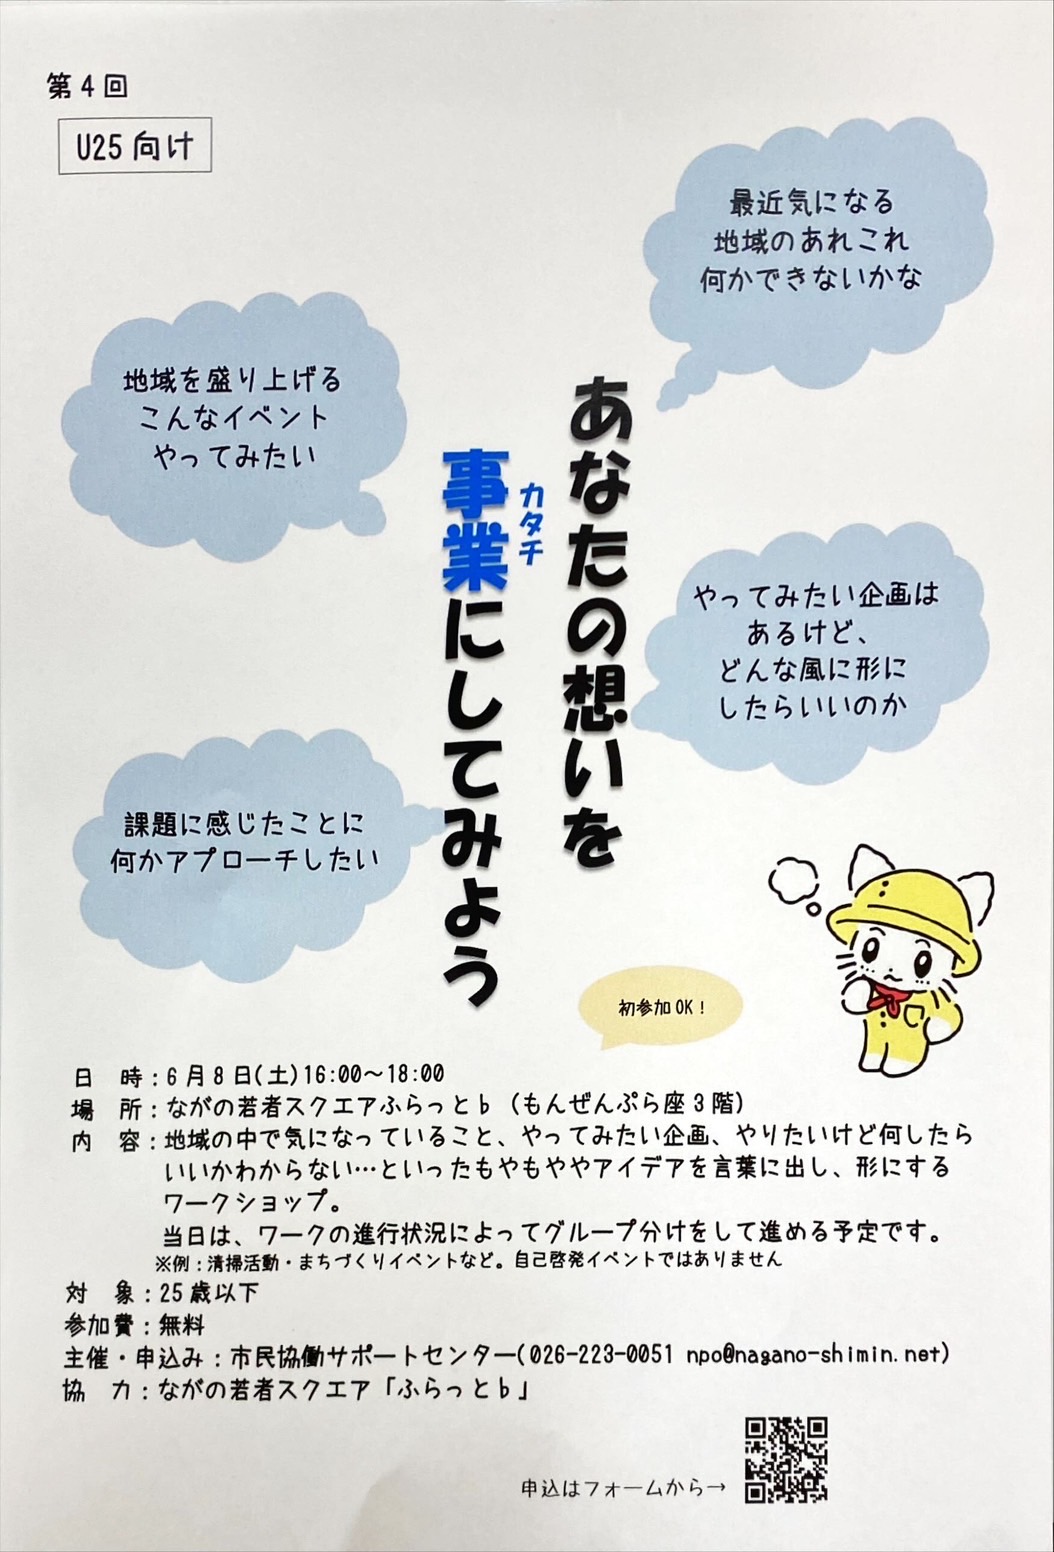 第4回
U25向け
最近気になる
地域のあれこれ
何かできないかな
地域を盛り上げる
こんなイベント
やってみたい
あなたの想いを
事業にしてみよう
カタチ
やってみたい企画は
あるけど、
どんな風に形に
したらいいのか
課題に感じたことに
何かアプローチしたい
初参加OK！
日　時：6月8日(土)16:00～18:00
場　所：ながの若者スクエアふらっと♭（もんぜんぷら座3階）
内　容：地域の中で気になっていること、やってみたい企画、やりたいけど何したら
いいかわからない…といったもやもややアイデアを言葉に出し、形にする
ワークショップ。
当日は、ワークの進行状況によってグループ分けをして進める予定です。
※例：清掃活動・まちづくりイベントなど。自己啓発イベントではありません
対　象：25歳以下
参加費：無料
主催・申込み：市民協働サポートセンター(026-223-0051 npo@nagano-shimin.net)
協　力：ながの若者スクエア「ふらっと♭」
申込はフォームから→